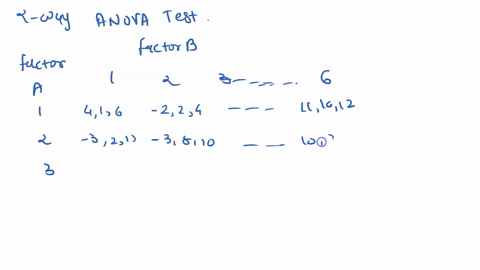 2-way ANOVA Test.
factor B
factor
A 1 2 3 - - - - . 6
1 4, 1, 6 -2, 2, 4 - - - 11, 10, 12
2 -3, 2, 10 -3, 8, 10 - - 10,
3